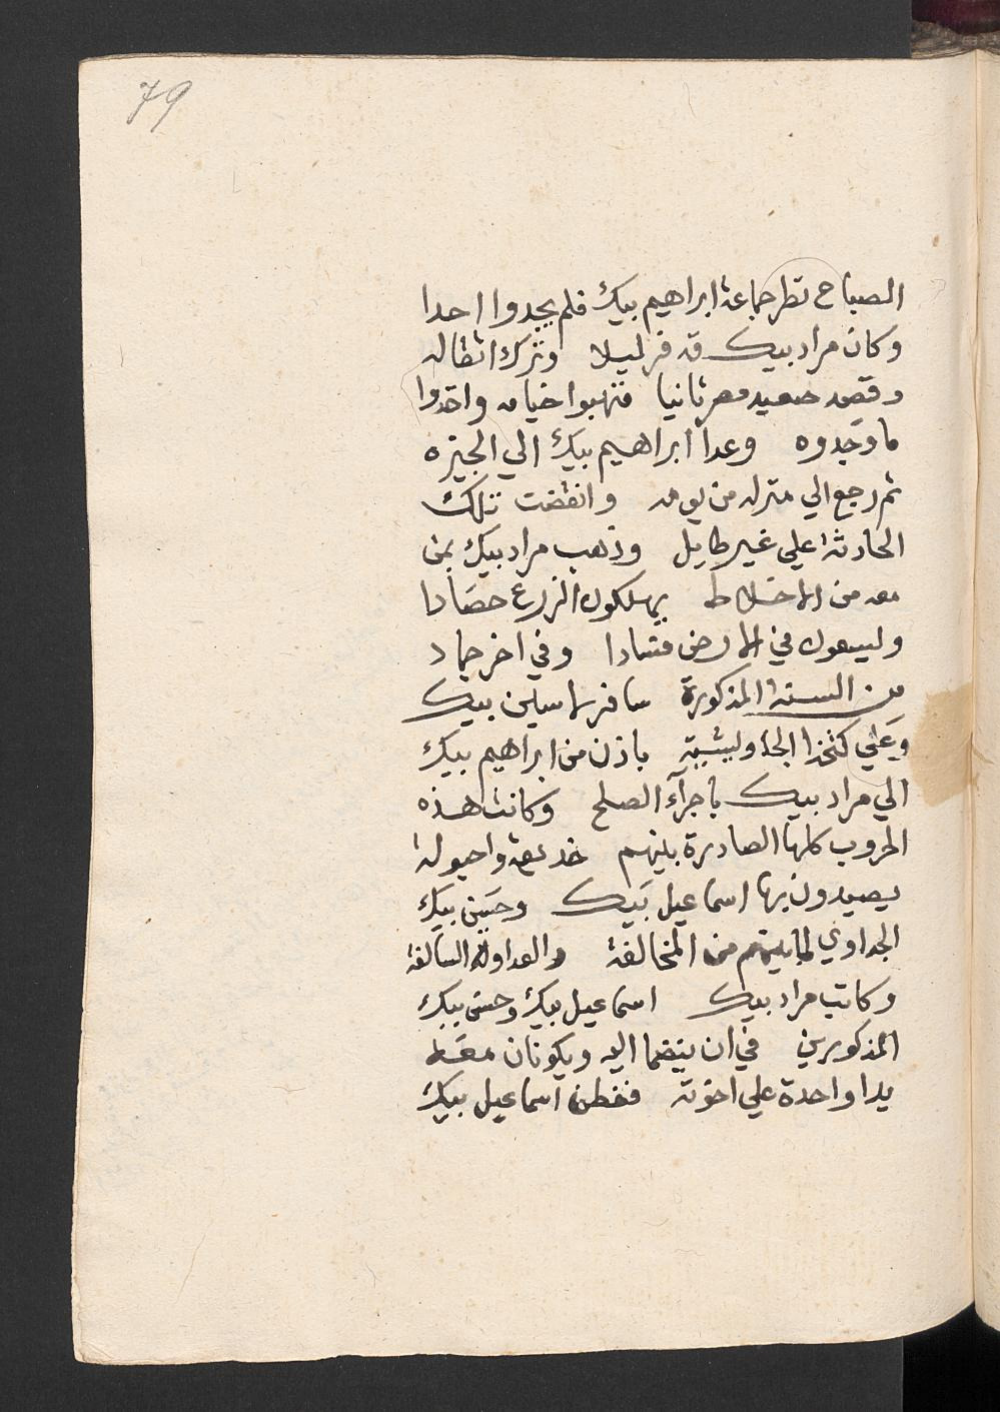 79
الصباح نظر جماعة ابراهيم بيك فلم يجدوا احدا
وكان مراد بيك قد فر ليلا وترك اثقاله
وقصد صعيد مصر ثانيا فنهبوا خيامه واخذوا
ما وجدوه وعدا ابراهيم بيك الي الجيزه
ثم رجع الي منزله من يومه وانقضت تلك
الحادثة علي غير طايل وذهب مراد بيك بمن
معه من الاخلاط يهلكون الزرع حصادا
وليسعون في الارض فسادا وفي اخر جماد
من السنة المذكورة سافر لاسلين بيك
وعلي كتخدا الجاوليشية باذن من ابراهيم بيك
الي مراد بيك باجرآء الصلح وكانت هذه
الحروب كلها الصادرة بينهم خدعة واحبولة
يصيدون بها اسماعيل بيك وحسن بيك
الجداوي لما بينهم من المخالفة والعداوة السالفة
وكاتب مراد بيك اسماعيل بيك وحسن بيك
المذكورين في ان ينضما اليه ويكونان معه
يدا واحدة علي اخوته ففطن اسماعيل بيك